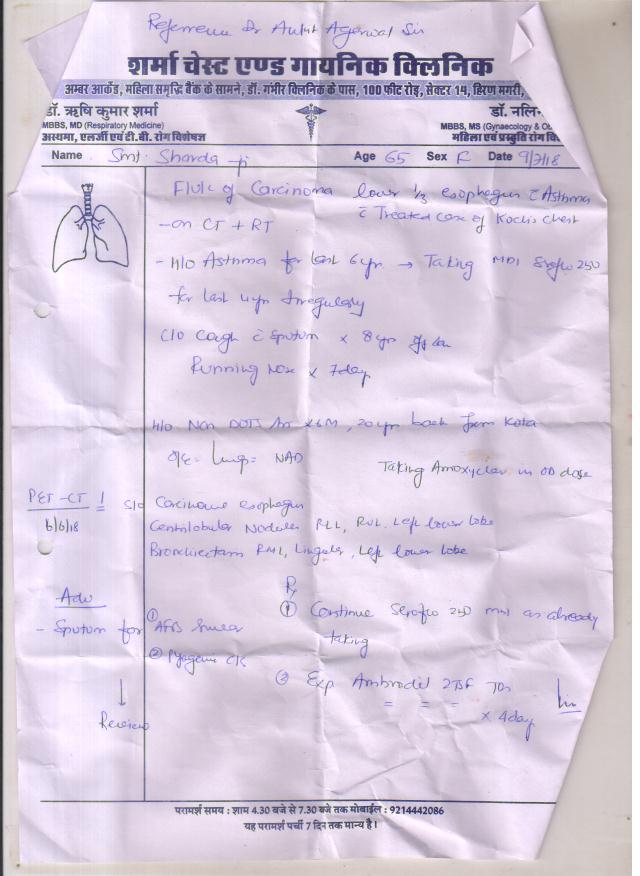 Reference Dr Ankit Agarwal Sir
शर्मा चेस्ट एण्ड गायनिक क्लिनिक
अम्बर आर्केड, महिला समृद्धि बैंक के सामने, डॉ. गंभीर क्लिनिक के पास, 100 फीट रोड़, सेक्टर 14, हिरण मगरी,
डॉ. ऋषि कुमार शर्मा
डॉ. नलि
MBBS, MD (Respiratory Medicine)
MBBS, MS (Gynaecology & Ob
अस्थमा, एलर्जी एवं टी.बी. रोग विशेषज्ञ
महिला एवं प्रसुति रोग वि
Name Smt. Sharda ji Age 65 Sex F Date 9/7/18
F/U/C of Carcinoma lower 1/3 esophagus c̄ Asthma
c̄ Treated case of Koch's chest
- on CT + RT
- H/O Asthma for last 6 yr → Taking MDI Seroflo 250
for last 4 yr Irregularly
C/O Cough c̄ Sputum x 8 yr
Running Nose x 7 day
H/O Non DOTS x 6M, 20 yr back from Kota
O/E = Lung = NAD
Taking Amoxyclav in OD dose
PET-CT
6/6/18
S/O Carcinoma esophagus
Centrilobular Nodules RLL, RUL. Left lower lobe
Bronchiectasis RML, Lingula, Left lower lobe
Adv
- Sputum for ① AFB Smear
② Pyogenic C/S
↓
Review
Rx
① Continue Seroflo 250 MDI as already
taking
② Exp Ambrodil 2TSF TDS
x 4 day
परामर्श समय : शाम 4.30 बजे से 7.30 बजे तक मोबाईल : 9214442086
यह परामर्श पर्ची 7 दिन तक मान्य है।